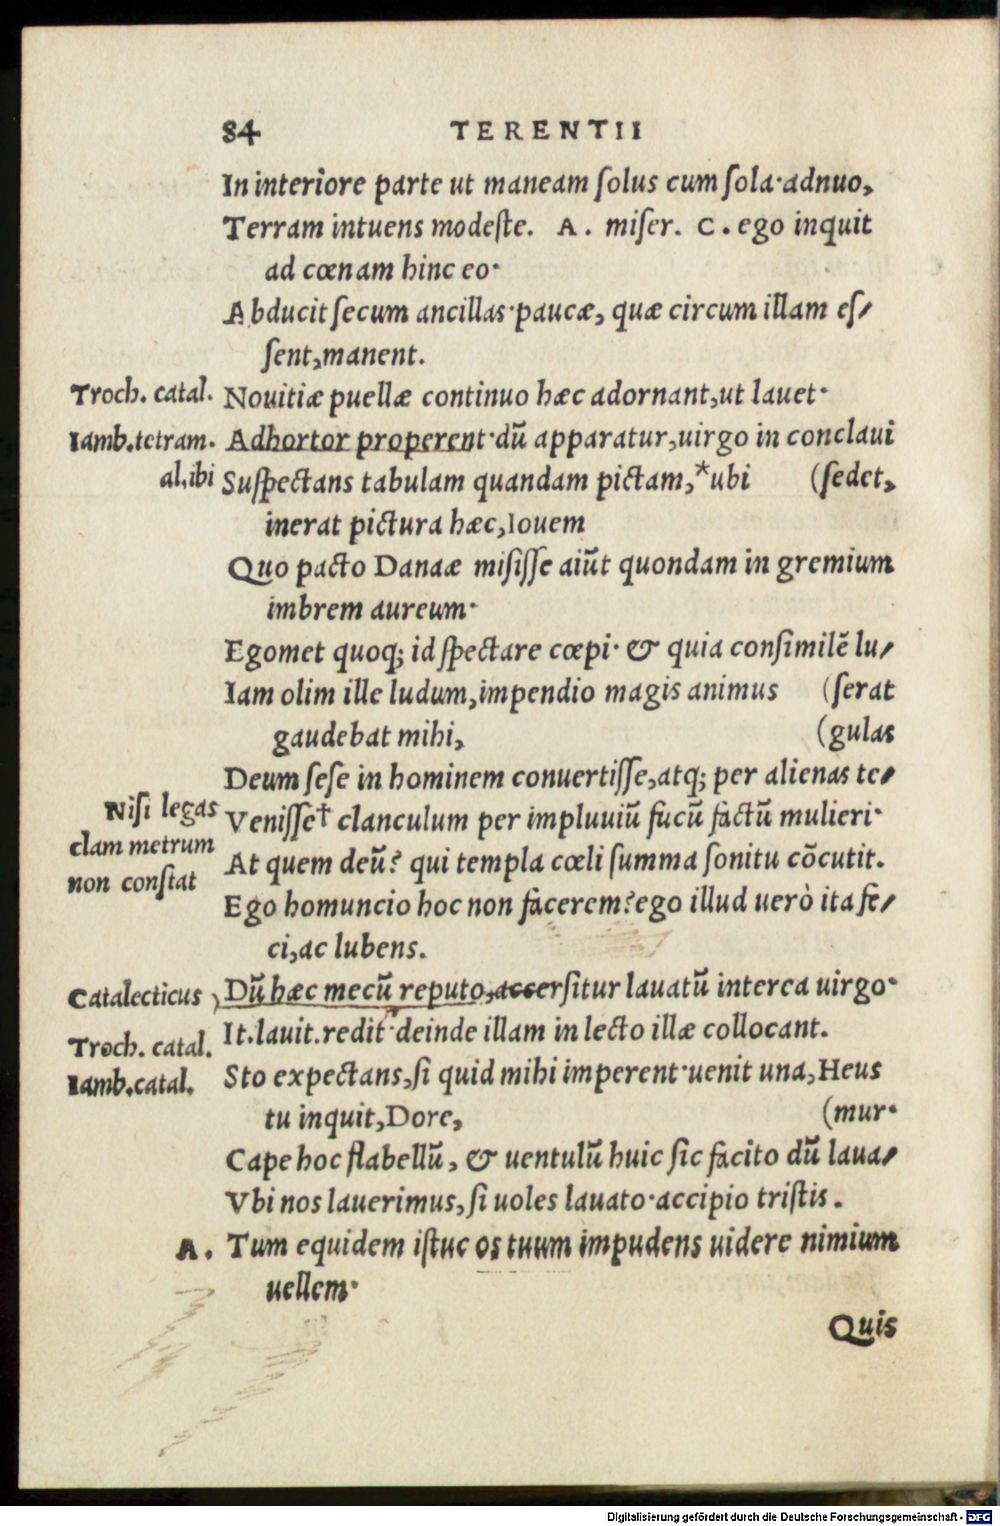 84 TERENTII
In interiore parte ut maneam ſolus cum ſola·adnuo,
Terram intuens modeſte. A. miſer. C. ego inquit
ad cœnam hinc eo·
Abducit ſecum ancillas·paucæ, quæ circum illam eſ/
ſent,manent.
Troch. catal. Nouitiæ puellæ continuo hæc adornant,ut lauet·
Iamb.tetram. Adhortor properent·dū apparatur,uirgo in conclaui
al.ibi Suſpectans tabulam quandam pictam,*ubi (ſedet,
inerat pictura hæc,Iouem
Quo pacto Danaæ miſiſſe aiūt quondam in gremium
imbrem aureum·
Egomet quoq; id ſpectare cœpi· & quia conſimilē lu/
Iam olim ille ludum,impendio magis animus (ſerat
gaudebat mihi, (gulas
Deum ſeſe in hominem conuertiſſe,atq; per alienas te/
Niſi legas Veniſſe† clanculum per impluuiū fucū factū mulieri·
clam metrum At quem deū? qui templa cœli ſumma ſonitu cōcutit.
non conſtat
Ego homuncio hoc non facerem?ego illud uerò ita fe/
ci,ac lubens.
Catalecticus Dū hæc mecū reputo,accerſitur lauatū interea uirgo·
Troch. catal. It.lauit.redit·deinde illam in lecto illæ collocant.
Iamb.catal. Sto expectans,ſi quid mihi imperent·uenit una,Heus
tu inquit,Dore, (mur·
Cape hoc flabellū, & uentulū huic ſic facito dū laua/
Vbi nos lauerimus,ſi uoles lauato·accipio triſtis.
A. Tum equidem iſtuc os tuum impudens uidere nimium
uellem·
Quis
Digitalisierung gefördert durch die Deutsche Forschungsgemeinschaft - DFG